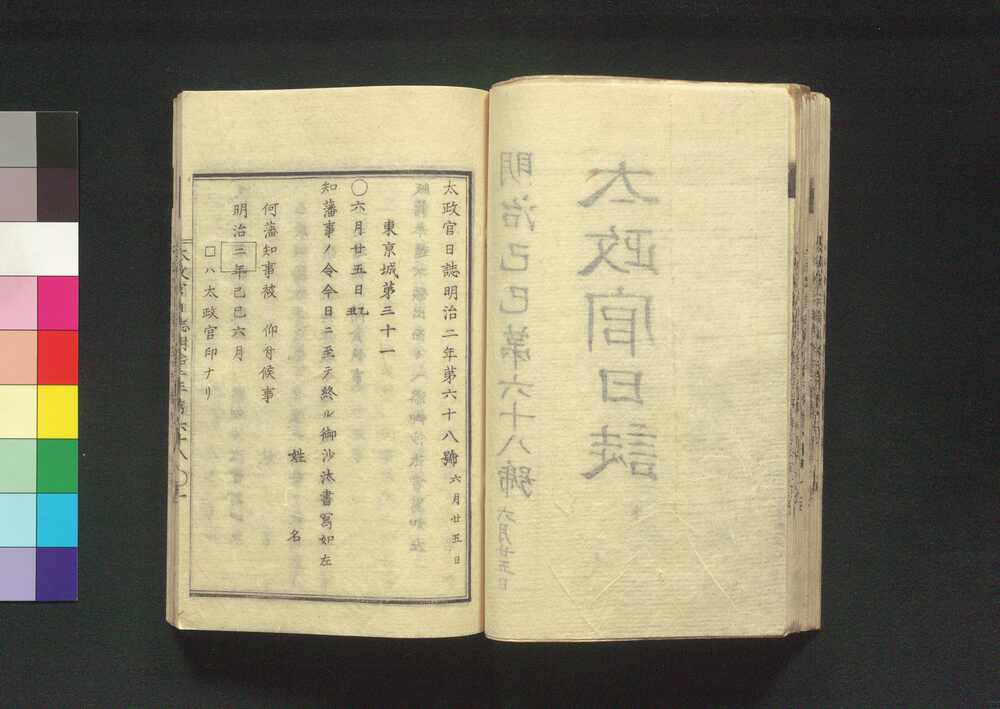 太政官日誌
明治己巳第六十八號 六月廿五日
太政官日誌明治二年第六十八號 六月廿五日
東京城第三十一
〇六月廿五日
知藩事ノ令今日ニ至テ終ル御沙汰書寫如左
姓 名
何藩知事被 仰付候事
明治二年己巳六月
□ハ太政官印ナリ
太政官日誌明治二年第六十八 〇一